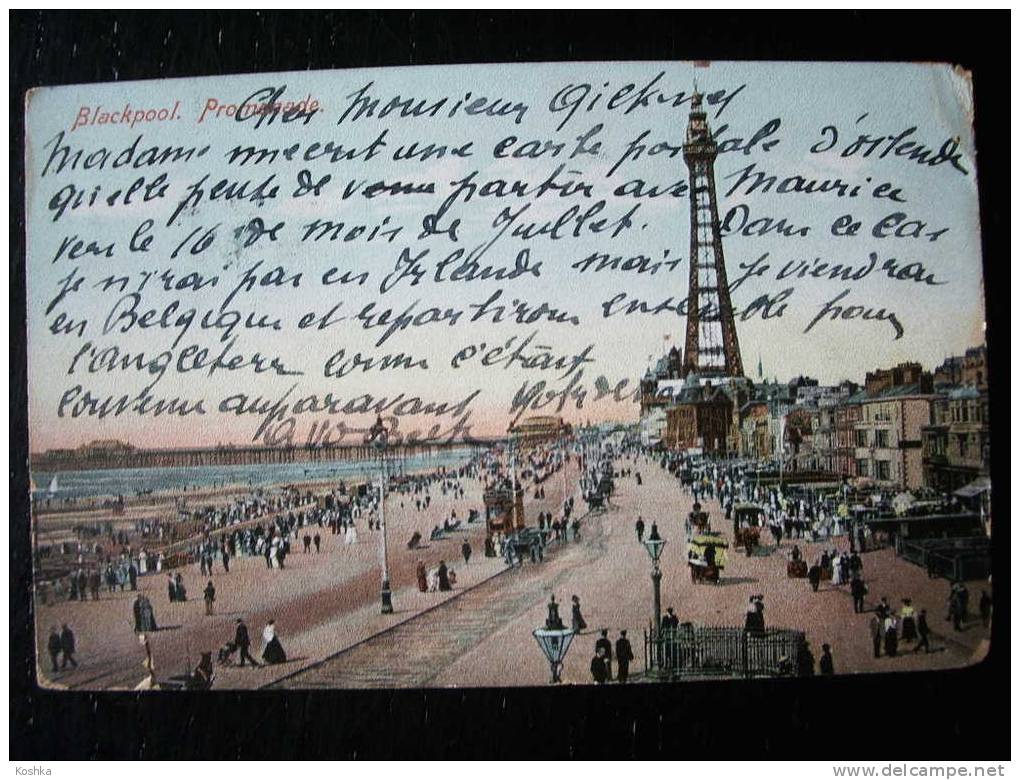 Blackpool. Promenade.
Cher Monsieur
Madame mecrit une carte postale d'ostende
qu'elle pense de venir partir avec Maurice
vers le 16 de mois de Juillet. Dans ce cas
je n'irai pas en Irlande mais je viendrai
en Belgique et repartirons ensemble pour
l'angleterre comme c'était
convenu auparavant votre
Koshka
http://www.delcampe.net